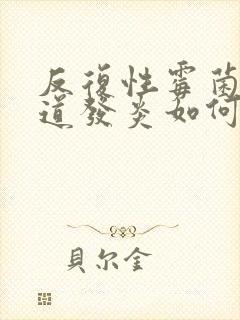 反復性霉菌
道發炎如何
貝尔金